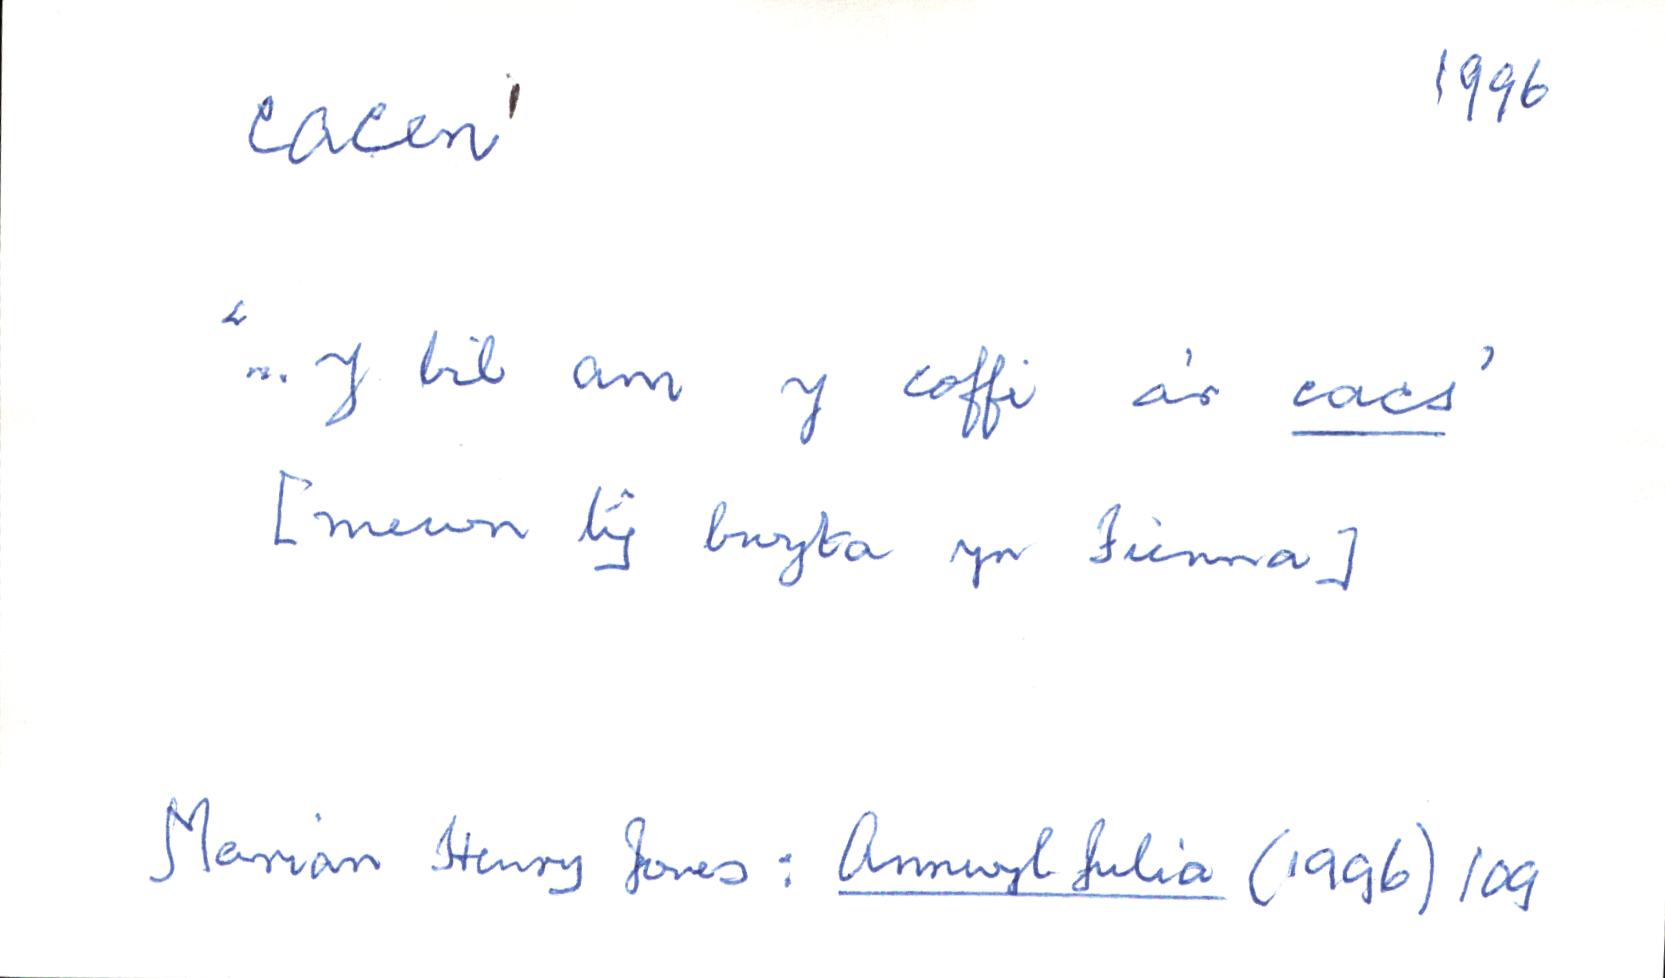 cacen¹
1996
"... y bil am y coffi a'r cacs'
[mewn tŷ bwyta yn Fienna]
Marian Henry Jones : Annwyl Julia (1996) 109